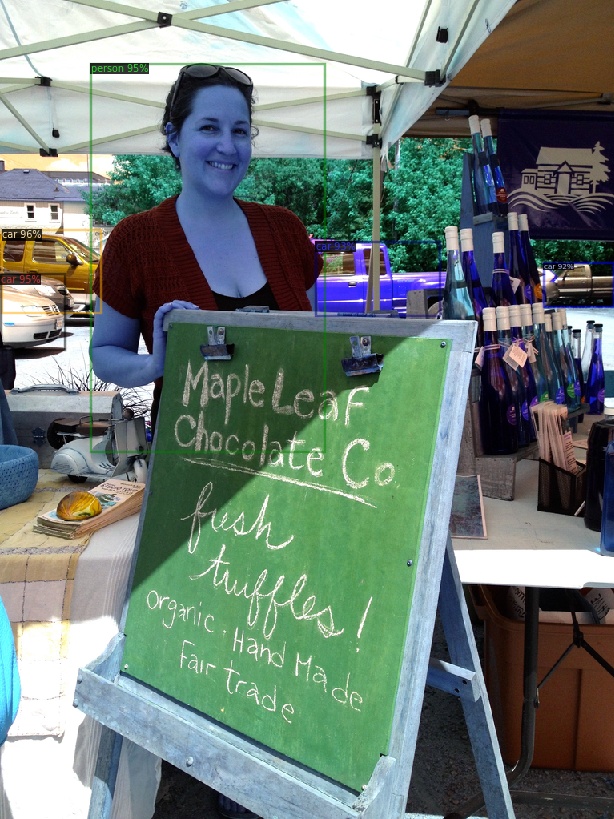 person 95%
car 96%
car 93%
car 92%
car 95%
Maple Leaf
Chocolate Co.
fresh
truffles!
organic · Hand Made
Fair trade